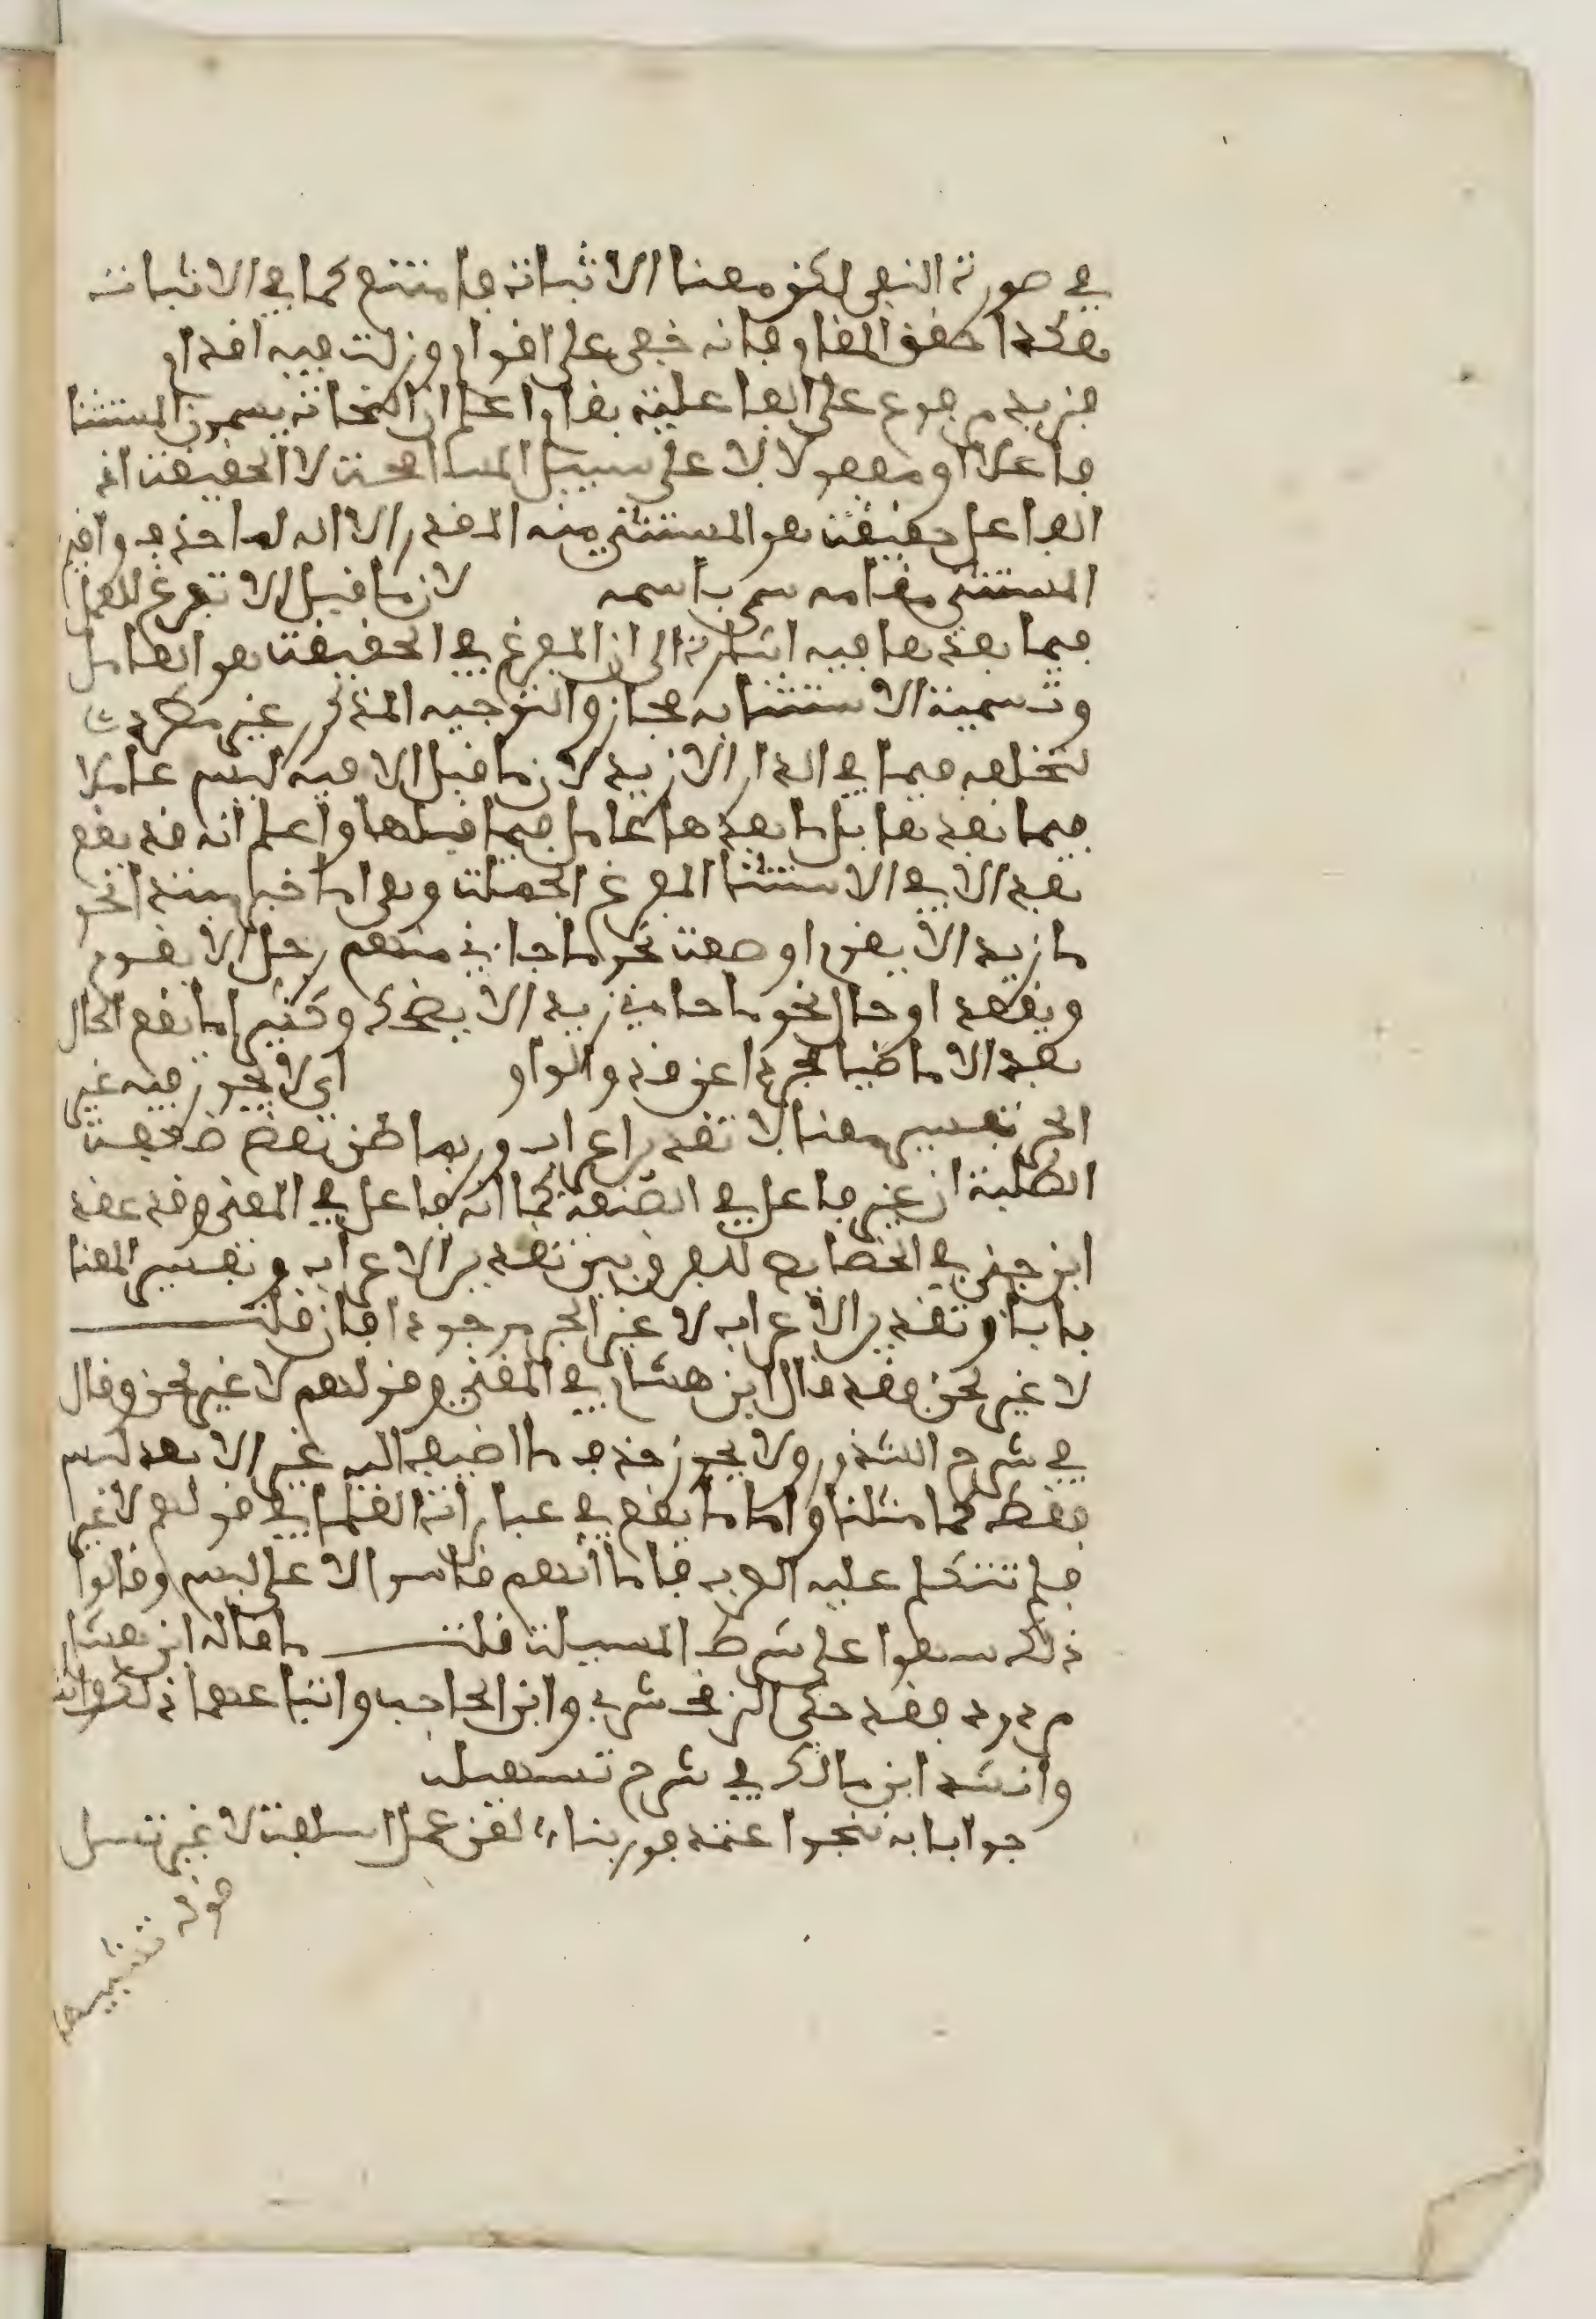 في صورة النفي لكن معنا الاثبات فامتنع كما في الاثبات
هكذا حقق المقام فانه خفي على اقوام وزلت فيه اقدام
فزيد مرفوع على الفاعلية يقال اعلم ان النحاة يسمون المستثنا
فاعلا او مفعولا لا على سبيل المسامحة لا الحقيقة اذ
الفاعل حقيقة هو المستثنى منه المقدر الا انه لما حذف واقيم
المستثنى مقامه سمي باسمه لان ما قبل الا تفرغ للعمل
فيما بعدها فيه اشارة الى ان المفرغ في الحقيقة هو العامل
وتسمية الاستثنا به مجاز والتوجيه المذكور غير مطرد
لتخلفه فيما في الدار الا زيد لان ما قبل الا فيه ليس عاملا
فيما بعدها بل ما بعدها عامل فيما قبلها واعلم انه قد يقع
بعد الا في الاستثنا المفرغ الجملة وهي اما خبر مبتدا نحو
ما زيد الا يقوم او صفة نحو ما جاءني منهم رجل الا يقوم
ويقعد او حال نحو ما جاءني زيد الا يضحك وكثيرا ما تقع الحال
بعد الا ماضيا مجردا عن قد والواو اي لا يجوز فيه غير
الجر تفسير معنا لا تقدير اعراب وربما ظن بعض ضعفة
الطلبة ان غير فاعل في الصنعة كما انه فاعل في المعنى وقد عقد
ابن جني في الخصايص للفرق بين تقدير الاعراب وتفسير المعنا
بابا وتقدير الاعراب لا غير الجر موجودا فان قلت
لا غير لحن فقد قال ابن هشام في المغني وقولهم لا غير لحن وقال
في شرح الشذور ولا يجوز حذف ما اضيف اليه غير الا بعد ليس
فقط كما مثلنا واما ما يقع في عبارات العلما في قولهم لا غير
فلم تتكلم عليه العرب فاما انهم قاسوا لا على ليس وقالوا
ذلك سهوا على شرط المسيلة قلت ما قاله ابن هشام
مردود فقد حكى الزمخشري وابن الحاجب واتباعهما ذلك
وانشد ابن مالك في شرح تسهيله
جوابا به تنجوا اعتمد فوربنا، لعن عمل اسلفت لا غير تسل
قوله تشبيها